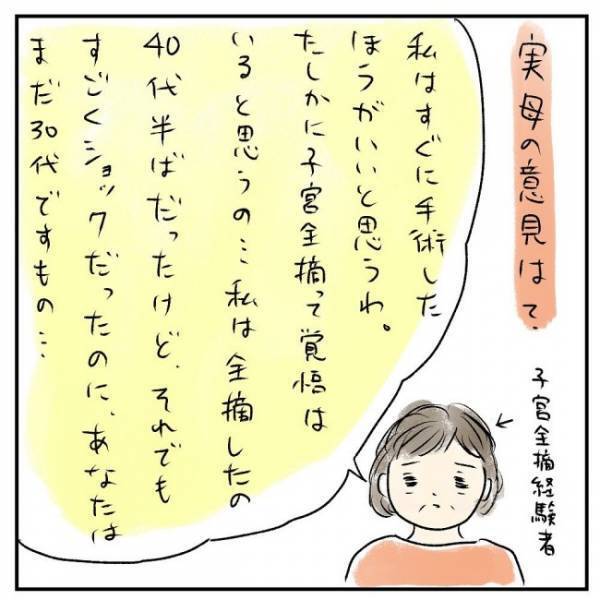 実母の意見は…
私はすぐに手術した
ほうがいいと思うわ。
たしかに子宮全摘って覚悟は
いると思うの… 私は全摘したの
40代半ばだったけど、それでも
すごくショックだったのに、あなたは
まだ30代ですもの…
子宮全摘経験者